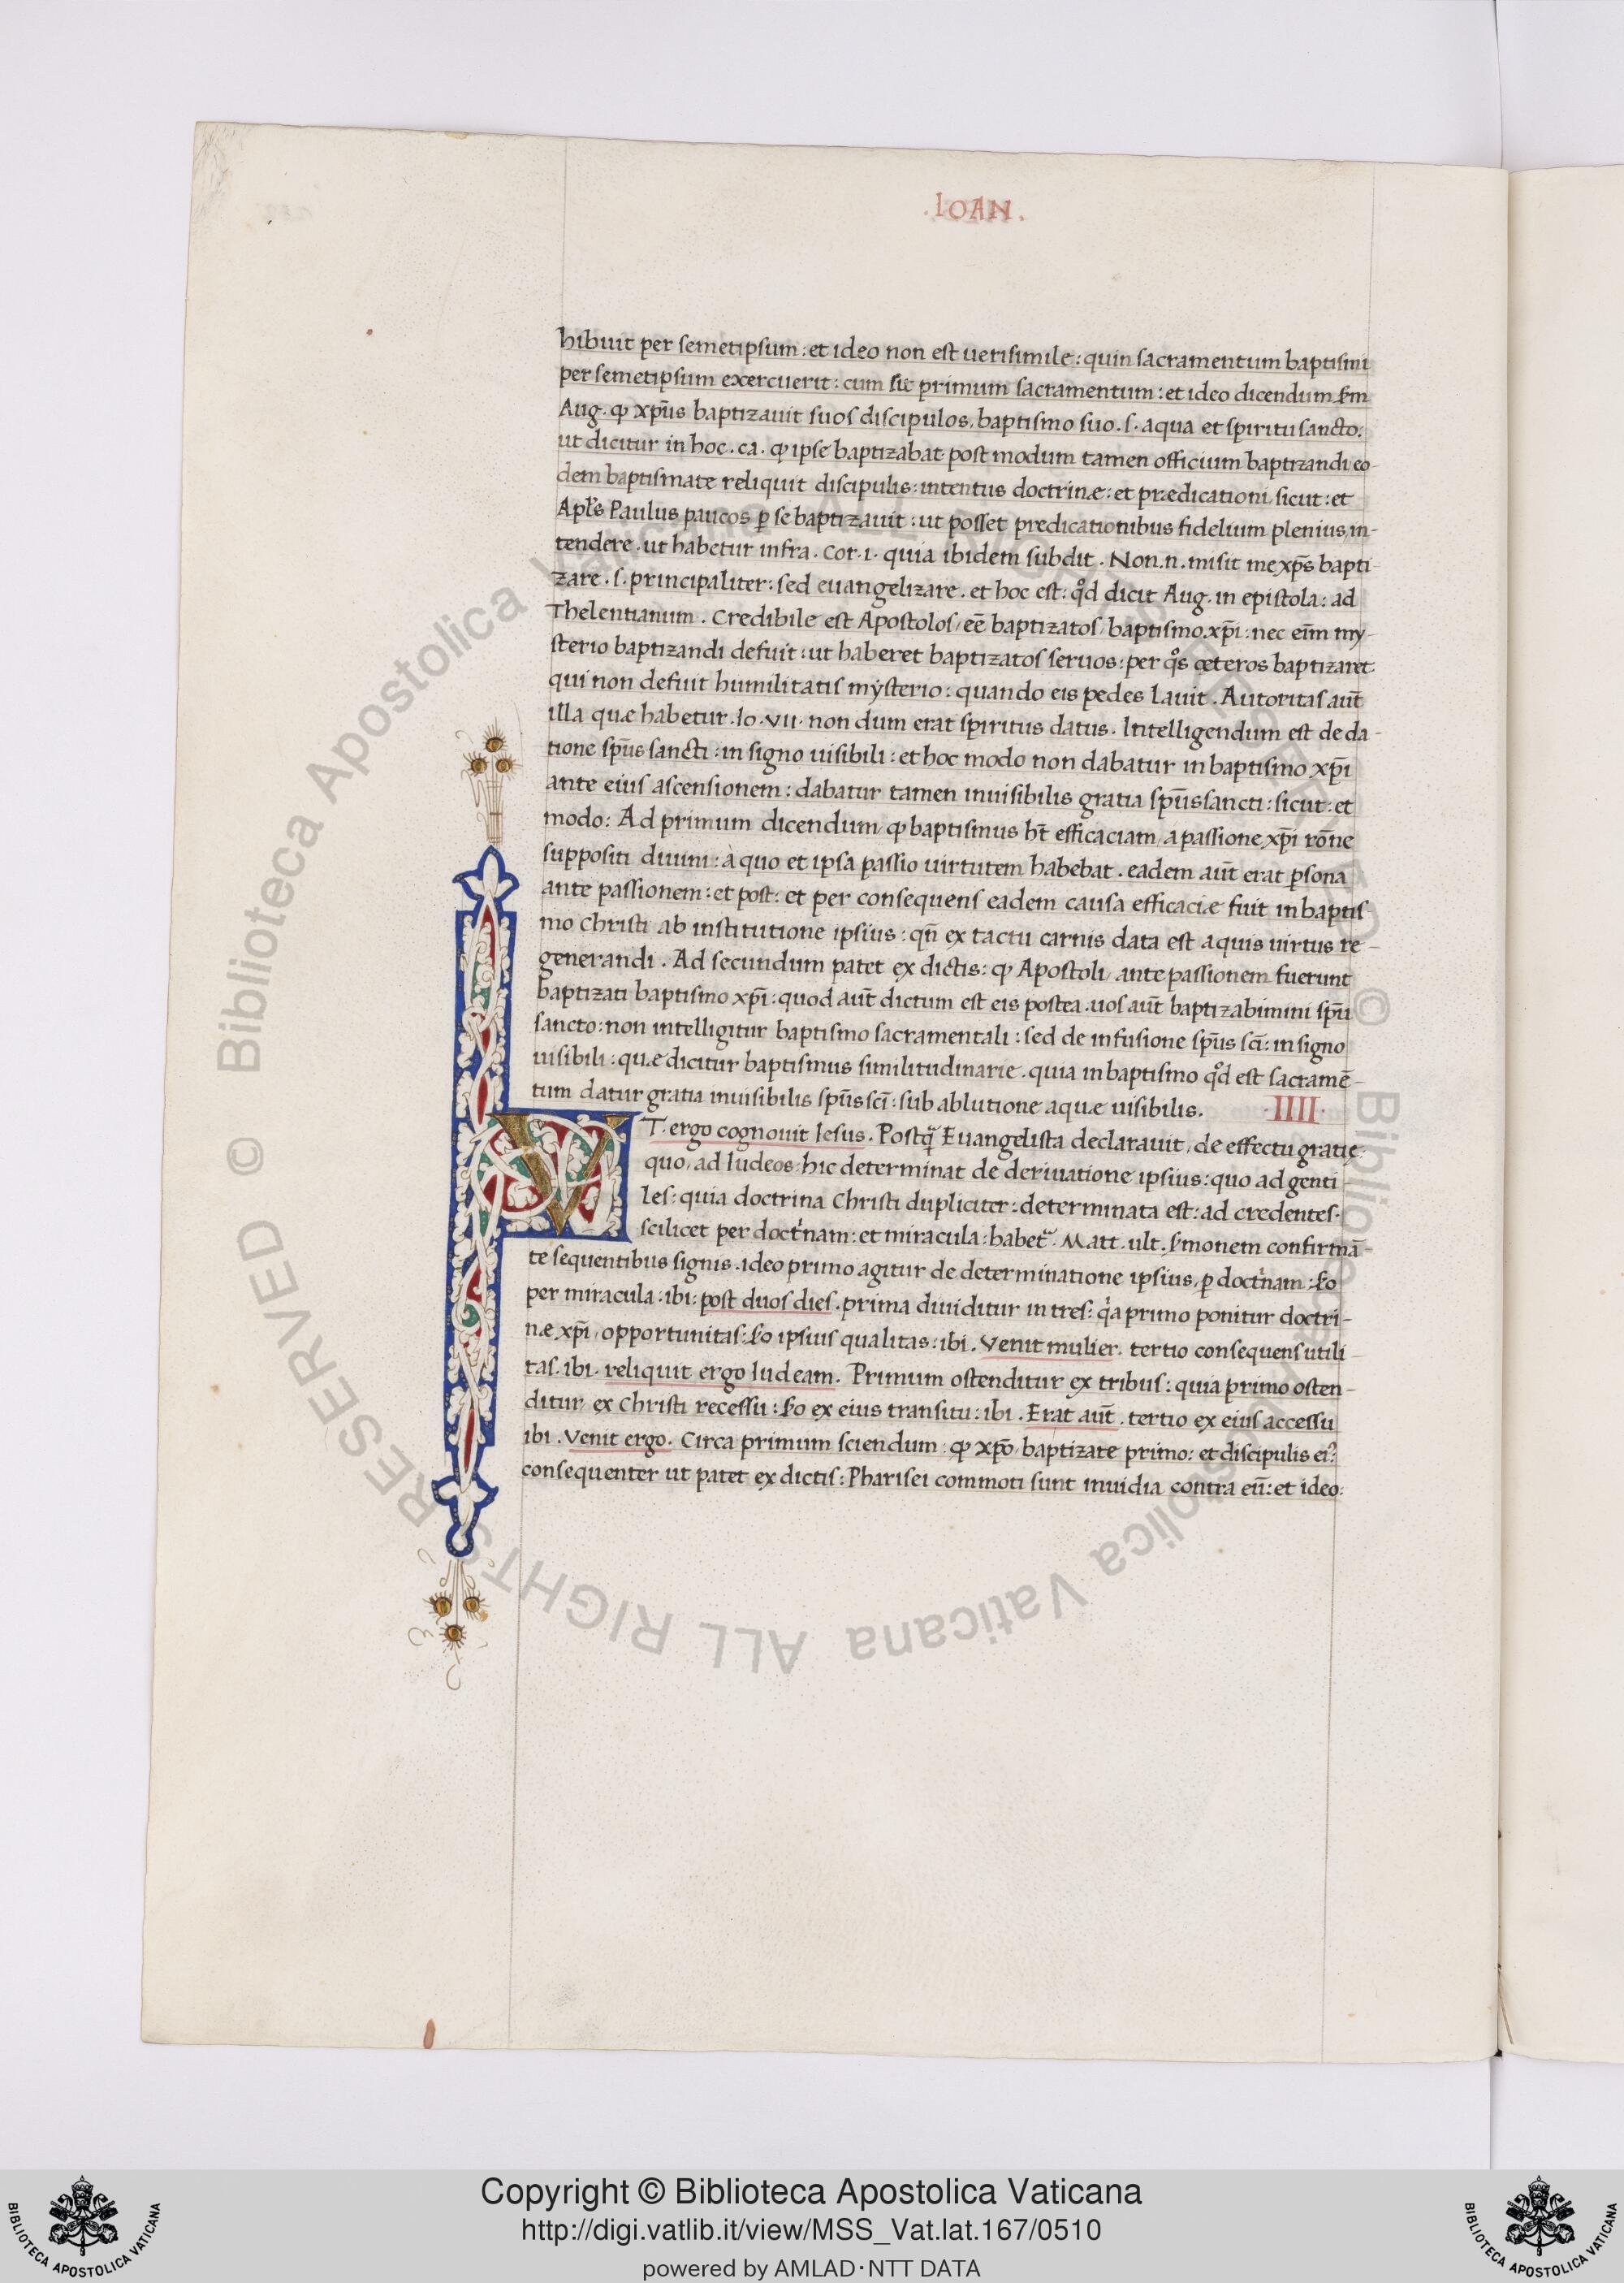 .IOAN.
hibuit per semetipsum: et ideo non est uerisimile: quin sacramentum baptismi
per semetipsum exercuerit: cum sit primum sacramentum: et ideo dicendum scdm
Aug. ꝙ xp̄us baptizauit suos discipulos, baptismo suo .s. aqua et spiritu sancto:
ut dicitur in hoc .ca. ꝙ ipse baptizabat post modum tamen officium baptizandi eo-
dem baptismate reliquit discipulis: intentus doctrinæ: et prædicationi sicut: et
Apl̄s Paulus paucos ꝑ se baptizauit: ut posset predicationibus fidelium plenius in-
tendere. ut habetur infra. Cor. 1. quia ibidem subdit. Non .n. misit me xp̄s bapti-
zare .s. principaliter: sed euangelizare. et hoc est: qd̊ dicit Aug. in epistola: ad
Thelentianum. Credibile est Apostolos, eē baptizatos, baptismo xp̄i: nec eīm my-
sterio baptizandi defuit: ut haberet baptizatos seruos: per qo̊s cæteros baptizaret
qui non defuit humilitatis mysterio: quando eis pedes lauit. Autoritas aūt
illa quæ habetur. Io. VII. non dum erat spiritus datus. Intelligendum est de da-
tione sp̄us sancti: in signo uisibili: et hoc modo non dabatur in baptismo xp̄i
ante eius ascensionem: dabatur tamen inuisibilis gratia sp̄us sancti: sicut: et
modo: Ad primum dicendum ꝙ baptismus h̄t efficaciam, a passione xp̄i rōne
suppositi diuini: à quo et ipsa passio uirtutem habebat. eadem aūt erat ꝑsona
ante passionem: et post: et per consequens eadem causa efficaciæ fuit in baptis
mo Christi ab institutione ipsius: qn̄ ex tactu carnis data est aquis uirtus re-
generandi. Ad secundum patet ex dictis: ꝙ Apostoli, ante passionem fuerunt
baptizati baptismo xp̄i: quod aūt dictum est eis postea. uos aūt baptizabimini sp̄u
sancto: non intelligitur baptismo sacramentali: sed de infusione sp̄us sc̄i: in signo
uisibili: quæ dicitur baptismus similitudinarie. quia in baptismo qd̊ est sacramē-
tum datur gratia inuisibilis sp̄us sc̄i: sub ablutione aquæ uisibilis. .IIII.
VT. ergo cognouit Iesus. Postq̄ Euangelista declarauit, de effectu gratię:
quo, ad Iudeos: hic determinat de deriuatione ipsius: quo ad genti-
les: quia doctrina Christi dupliciter: determinata est: ad credentes.
scilicet per doctͥnam: et miracula: habet᷑. Matt. ult. s̕monem confirmā-
te sequentibus signis. ideo primo agitur de determinatione ipsius, ꝑ doctͥnam: scdo
per miracula: ibi: post duos dies. prima diuiditur in tres: qͥa primo ponitur doctri-
næ xp̄i, opportunitas: scdo ipsius qualitas: ibi. Venit mulier. tertio consequens utili-
tas. ibi. reliquit ergo Iudeam. Primum ostenditur ex tribus: quia primo osten-
ditur ex Christi recessu: scdo ex eius transitu: ibi. Erat aūt. tertio ex eius accessu
ibi. Venit ergo. Circa primum sciendum: ꝙ xp̄o, baptizate primo: et discipulis eiꝰ
consequenter ut patet ex dictis: Pharisei commoti sunt inuidia contra eū: et ideo:
© Biblioteca Apostolica Vaticana ALL RIGHTS RESERVED
Copyright © Biblioteca Apostolica Vaticana
http://digi.vatlib.it/view/MSS_Vat.lat.167/0510
powered by AMLAD·NTT DATA
BIBLIOTECA APOSTOLICA VATICANA
BIBLIOTECA APOSTOLICA VATICANA